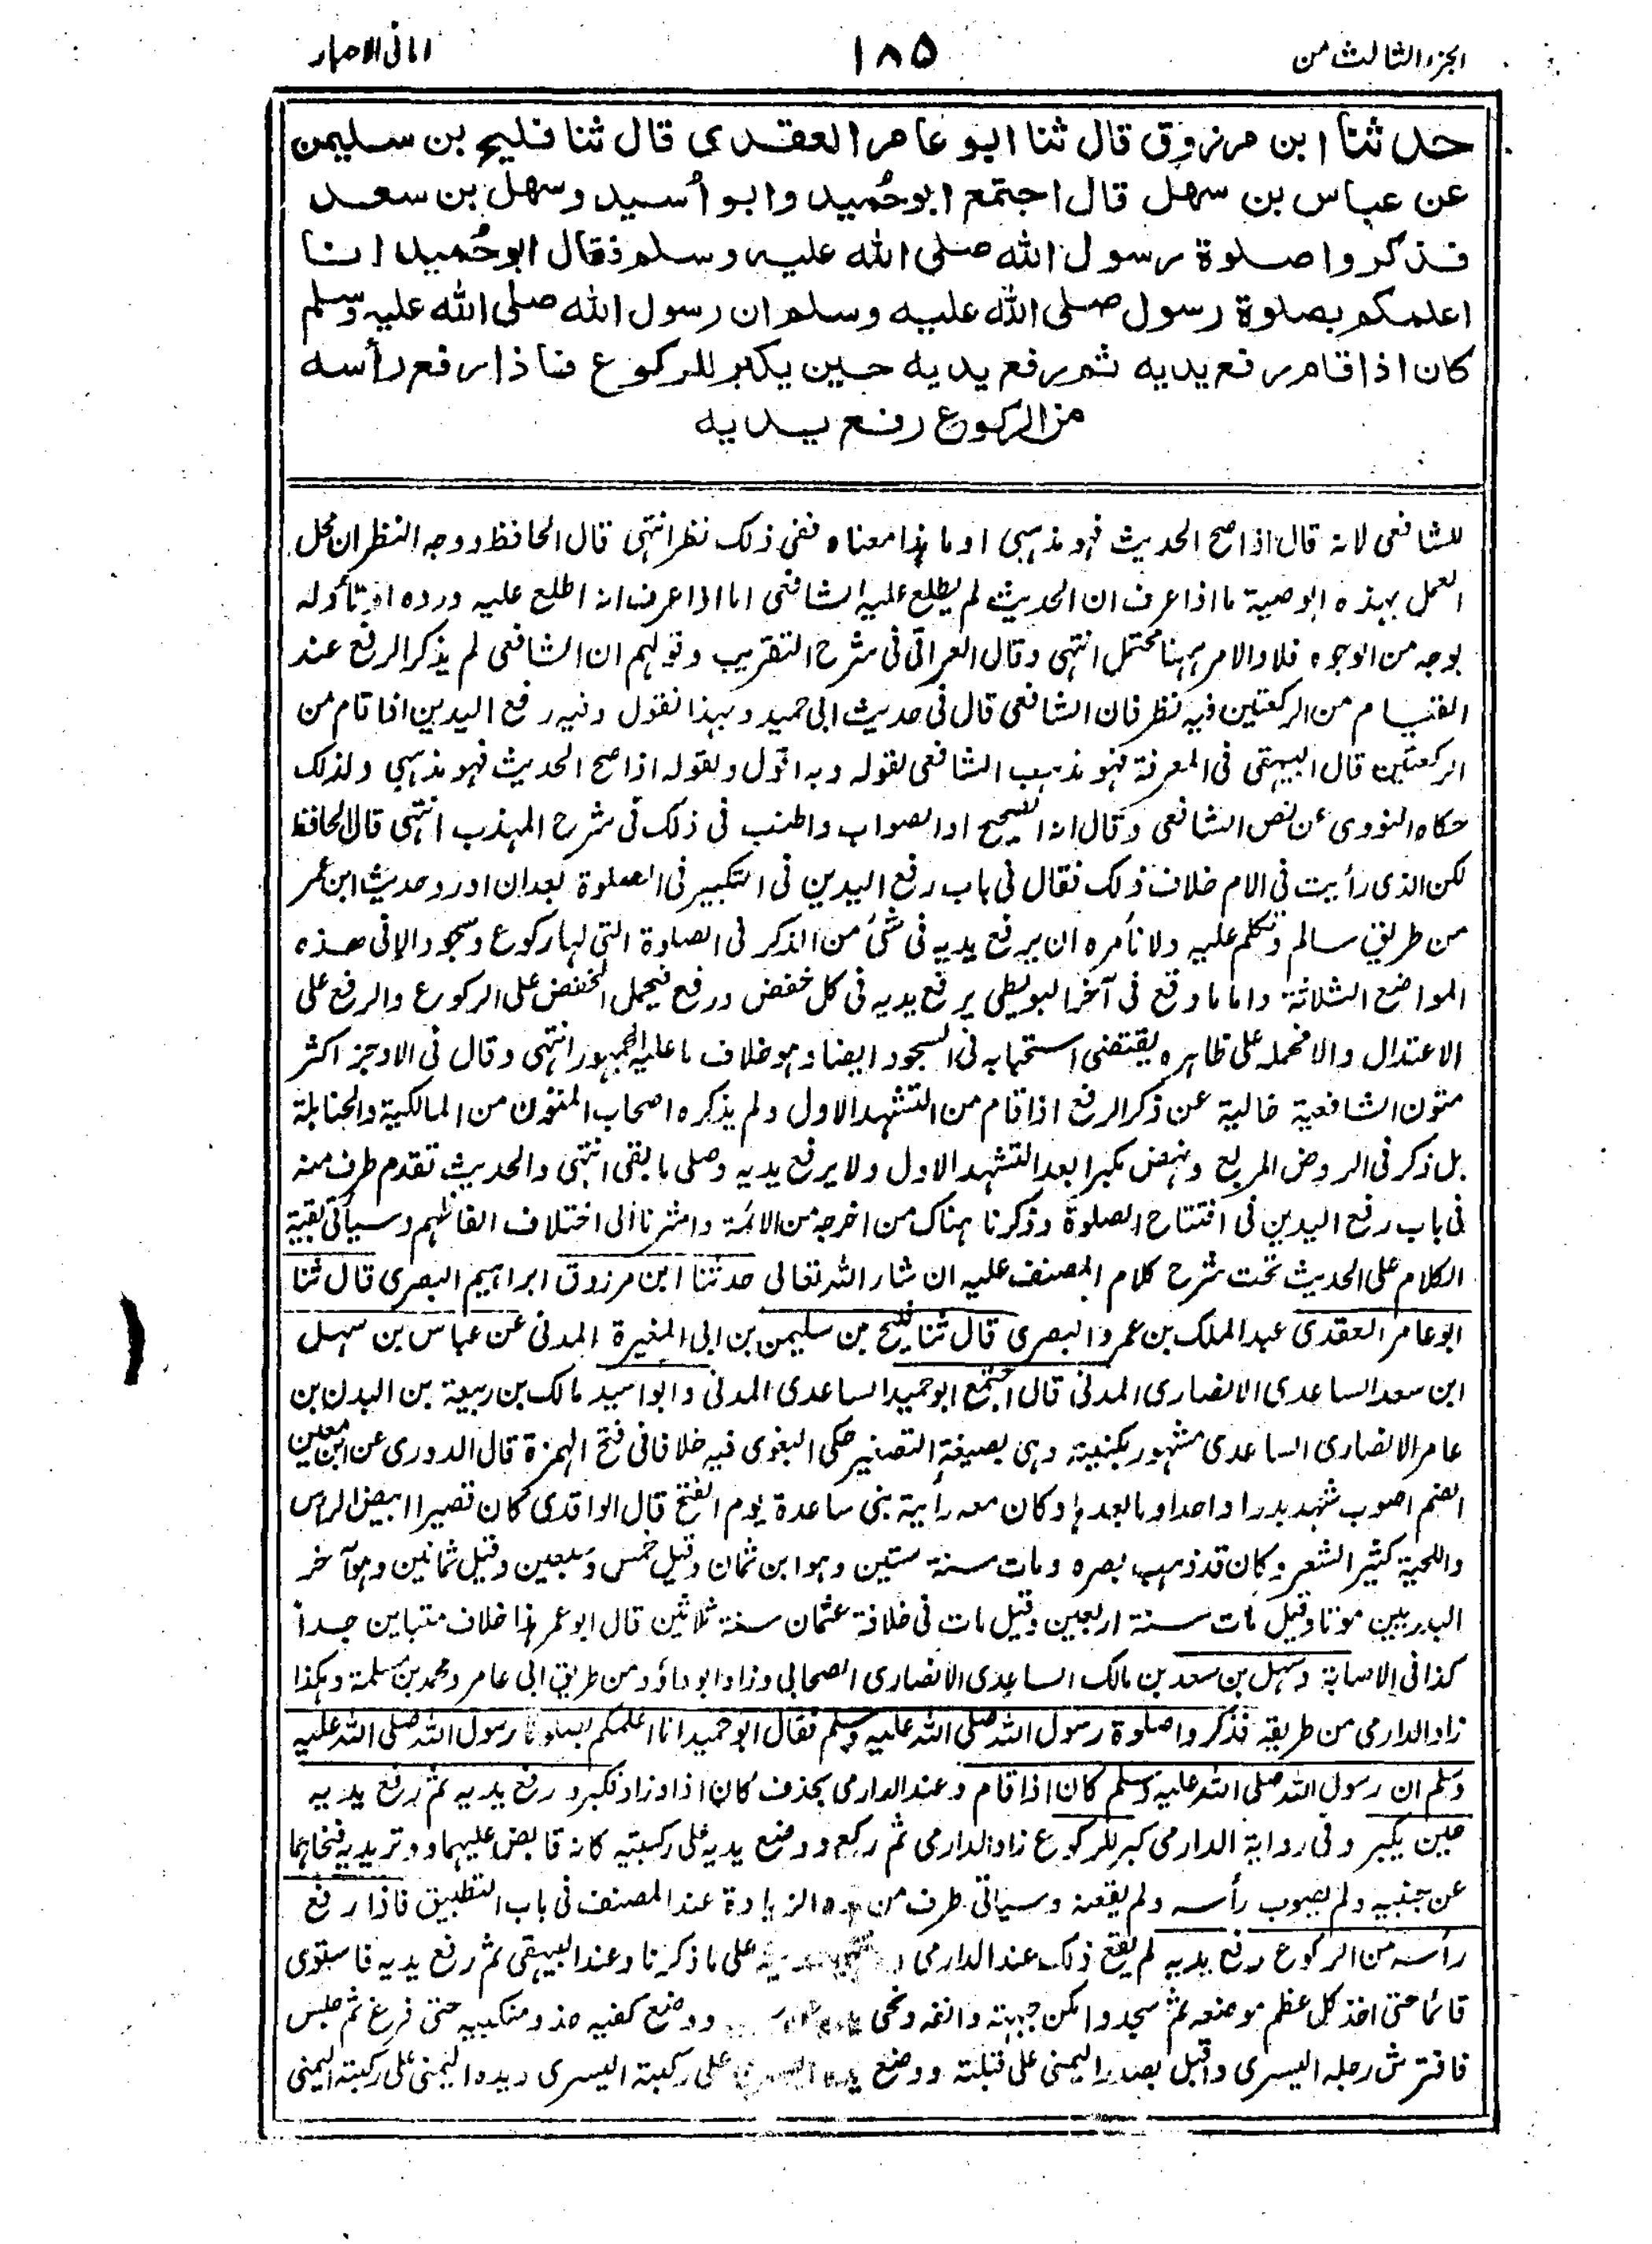 الجزء الثالث من
١٨٥
امانی الاحبار
حدثنا ابن مرزوق قال ثنا ابو عامر العقدی قال ثنا فلیح بن سلیمن
عن عباس بن سهل قال اجتمع ابوحُمید وابو اُسید وسهل بن سعد
فذکروا صلوة رسول الله صلی الله علیه وسلم فقال ابوحُمید انا
اعلمکم بصلوة رسول صلی الله علیه وسلم ان رسول الله صلی الله علیه وسلم
کان اذا قام رفع یدیه ثم رفع یدیه حین یکبر للرکوع فاذا رفع رأسه
من الرکوع رفع یدیه
للشافعی لانه قال اذا صح الحدیث فهو مذهبی او ما هذا معناه ففی ذلک نظر انتهی قال الحافظ ووجه النظر ان محل
العمل بهذه الوصیة ما اذا عرف ان الحدیث لم یطلع علیه الشافعی اما اذا عرف انه اطلع علیه ورده او تأوله
بوجه من الوجوه فلا والامر ههنا محتمل انتهی وقال العراقی فی شرح التقریب وقولهم ان الشافعی لم یذکر الرفع عند
القیام من الرکعتین فیه نظر فان الشافعی قال فی حدیث ابی حمید وبهذا نقول وفیه رفع الیدین اذا قام من
الرکعتین قال البیهقی فی المعرفة فهو مذهب الشافعی لقوله وبه اقول ولقوله اذا صح الحدیث فهو مذهبی ولذلک
حکاه النووی عن نص الشافعی وقال انه الصحیح او الصواب واطنب فی ذلک فی شرح المهذب انتهی قال الحافظ
لکن الذی رأیت فی الام خلاف ذلک فقال فی باب رفع الیدین فی التکبیر فی الصلوة بعد ان اورد حدیث ابن عمر
من طریق سالم وتکلم علیه ولا نأمره ان یرفع یدیه فی شئ من الذکر فی الصلوة التی لها رکوع وسجود الا فی هذه
المواضع الثلاثة واما ما وقع فی آخر البویطی یرفع یدیه فی کل خفض ورفع فیحمل الخفض علی الرکوع والرفع علی
الاعتدال والا فحمله علی ظاهره یقتضی استحبابه فی السجود ایضا وهو خلاف ما علیه الجمهور انتهی وقال فی الاوجز اکثر
متون الشافعیة خالیة عن ذکر الرفع اذا قام من التشهد الاول ولم یذکره اصحاب المتون من المالکیة والحنابلة
بل ذکر فی الروض المربع ونهض مکبرا بعد التشهد الاول ولا یرفع یدیه وصلی ما بقی انتهی والحدیث تقدم طرف منه
فی باب رفع الیدین فی افتتاح الصلوة وذکرنا هناک من اخرجه من الائمة واشرنا الی اختلاف الفاظهم وسیأتی بقیة
الکلام علی الحدیث تحت شرح کلام المصنف علیه ان شاء الله تعالی حدثنا ابن مرزوق ابراهیم البصری قال ثنا
ابو عامر العقدی عبد الملک بن عمرو البصری قال ثنا فلیح بن سلیمن بن ابی المغیرة المدنی عن عباس بن سهل
ابن سعد الساعدی الانصاری المدنی قال اجتمع ابو حمید الساعدی المدنی وابو اسید مالک بن ربیعة بن البدن بن
عامر الانصاری الساعدی مشهور بکنیته وهی بصیغة التصغیر حکی البغوی فیه خلافا فی فتح الهمزة قال الدوری عن ابن معین
الضم اصوب شهد بدرا واحدا وما بعدها وکان معه رأیة بنی ساعدة یوم الفتح قال الواقدی کان قصیرا ابیض الرأس
واللحیة کثیر الشعر وکان قد ذهب بصره ومات سنة ستین وهو ابن ثمان وقیل خمس وسبعین وقیل ثمانین وهو آخر
البدریین موتا وقیل مات سنة اربعین وقیل مات فی خلافة عثمان سنة ثلاثین قال ابو عمر هذا خلاف متباین جداً
کذا فی الاصابة وسهل بن سعد بن مالک الساعدی الانصاری الصحابی وزاد ابوداؤد من طریق ابی عامر ومحمد بن مسلمة وهکذا
زاد الدارمی من طریقه فذکروا صلوة رسول الله صلی الله علیه وسلم فقال ابو حمید انا اعلمکم بصلوة رسول الله صلی الله علیه
وسلم ان رسول الله صلی الله علیه وسلم کان اذا قام وعند الدارمی بحذف کان اذا وزاد فکبر ورفع یدیه ثم رفع یدیه
حین یکبر وفی روایة الدارمی کبر للرکوع زاد الدارمی ثم رکع ووضع یدیه علی رکبتیه کانه قابض علیهما ووتر یدیه فنحاهما
عن جنبیه ولم یصوب رأسه ولم یقنعه وسیاتی طرف من هذه الزیادة عند المصنف فی باب التطبیق فاذا رفع
رأسه من الرکوع رفع یدیه لم یقع ذلک عند الدارمی علی ما ذکرنا وعند البیهقی ثم رفع یدیه فاستوی
قائما حتی اخذ کل عظم موضعه ثم سجد وامکن جبهته وانفه ونحی ووضع کفیه حذو منکبیه حتی فرغ ثم جلس
فافترش رجله الیسری واقبل بصدر الیمنی علی قبلته ووضع یده الیسری علی رکبته الیسری ویده الیمنی علی رکبته الیمنی